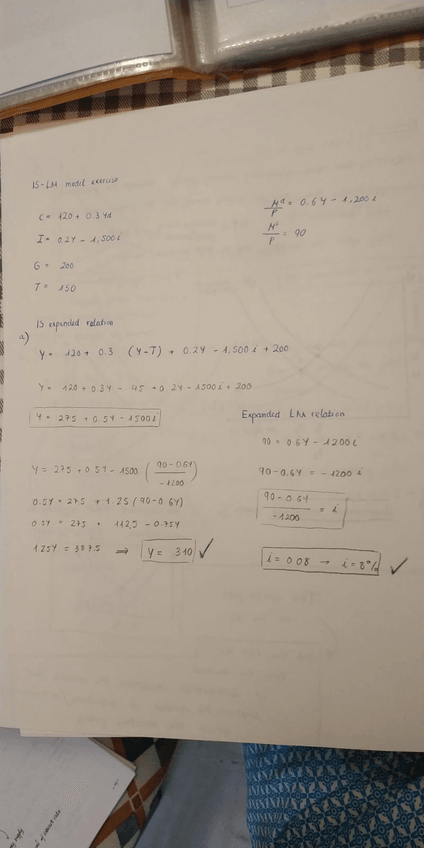 IS-LM model exercise
C = 120 + 0.3Yd
I = 0.2Y - 1,500 i
G = 200
T = 150
M^d/P = 0.6Y - 1,200 i
M^s/P = 90
a) IS expanded relation
Y = 120 + 0.3 (Y-T) + 0.2Y - 1,500 i + 200
Y = 120 + 0.3Y - 45 + 0.2Y - 1500 i + 200
Y = 275 + 0.5Y - 1500 i
Y = 275 + 0.5Y - 1500 (90 - 0.6Y / -1200)
0.5Y = 275 + 1.25 (90 - 0.6Y)
0.5Y = 275 + 112,5 - 0.75Y
1.25Y = 387.5 ⇒ Y = 310 ✓
Expanded LM relation
90 = 0.6Y - 1200 i
90 - 0.6Y = -1200 i
90 - 0.6Y / -1200 = i
i = 0.08 → i = 8% ✓